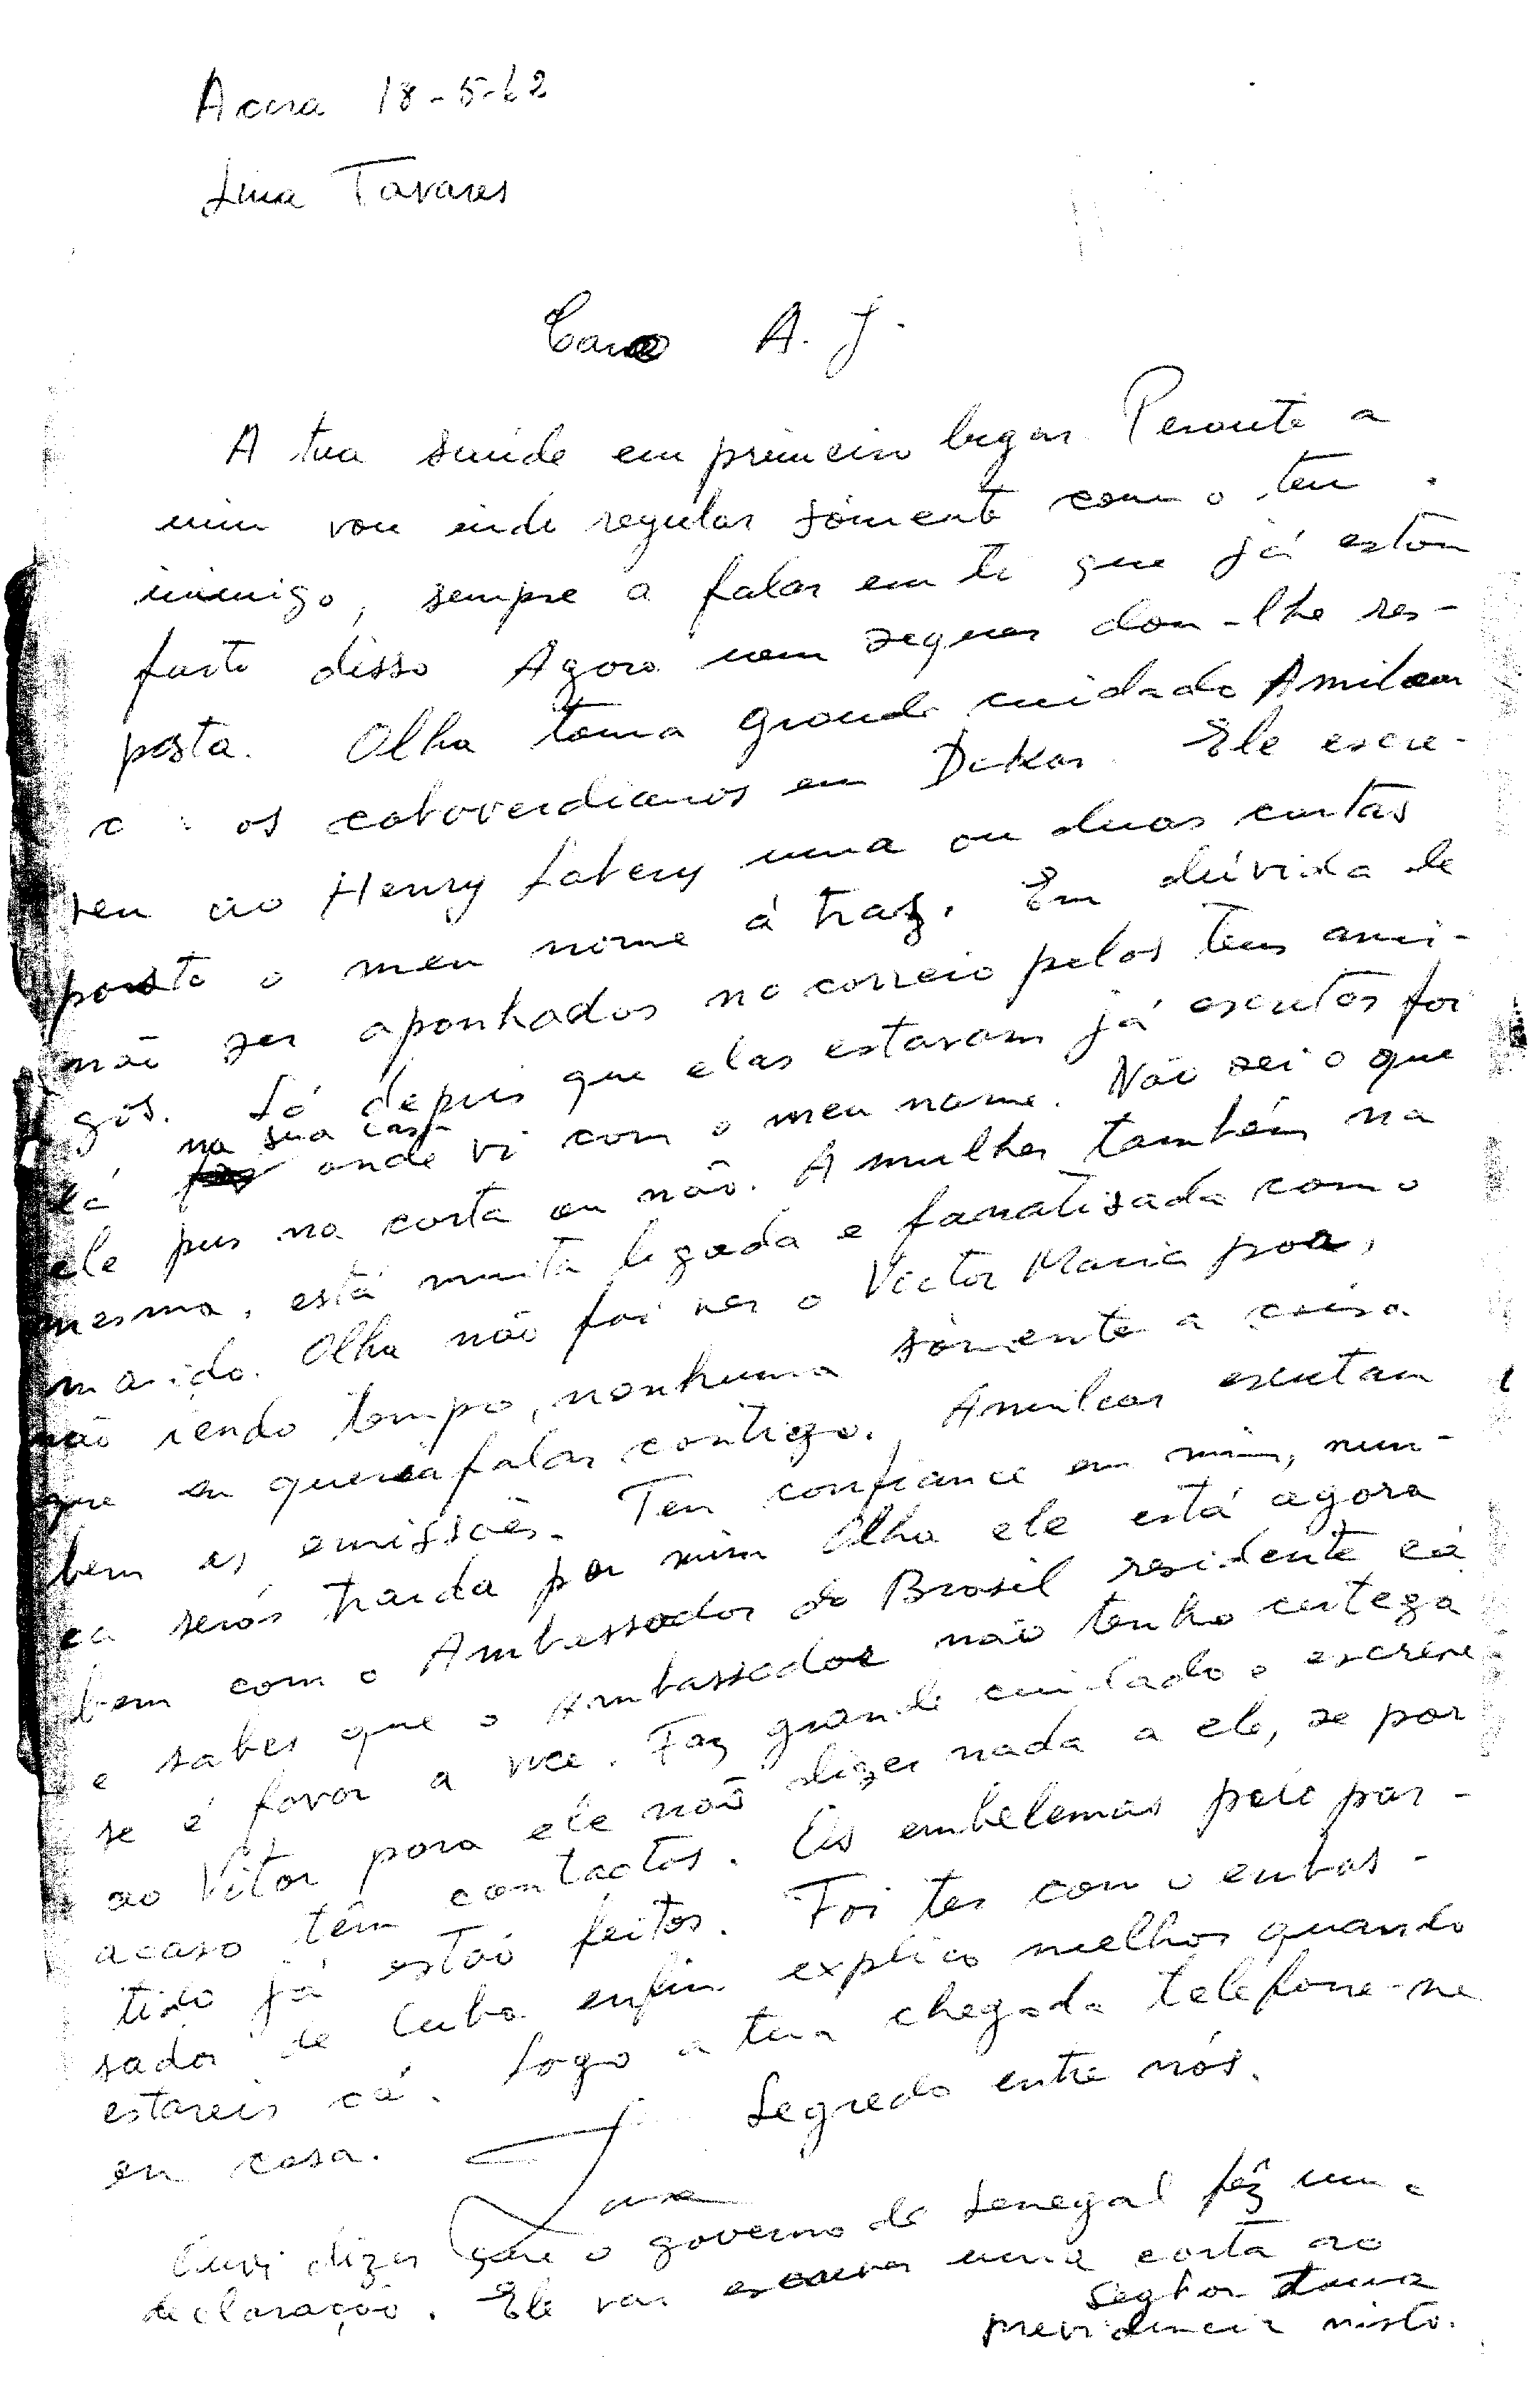 Accra 18-5-62
Lina Tavares
Caro A. J.
A tua saúde em primeiro lugar. Perante a
mim vou indo regular sómente com o teu
inimigo, sempre a falar em ti que já estou
farto disso Agora nem sequer dou-lhe res-
posta. Olha toma grande cuidado Amilcar
c os caboverdianos em Dakar. Ele escre-
veu ao Henry Labery uma ou duas cartas
posto o meu nome á traz. Em dúvida de
não ser aponhados no correio pelos teus ami-
gos. Só depois que elas estavam já escritas foi
na sua casa
lá onde vi com o meu nome. Não sei o que
ele pus na carta ou não. A mulher também na
mesma, está muita ligada e fanatisada com o
marido. Olha não foi ver o Victor Maria por,
não tendo tempo, nonhuma sómente a coisa
que eu queria falar contigo. Amilcar escutam
bem as emissões. Ten confiance em mim, nun-
ca serás traida por mim Olha ele está agora
bem com o Ambassador do Brasil residente cá
e sabes que o Ambassador não tenho certeza
se é favor a vce. Faz grande cuidado e escreve
ao Vitor para ele não dizer nada a ele, se por
acaso têm contactos. Os embelemas pelo par-
tido já estão feitos. Foi ter com o embas-
sador de Cuba enfim explico melhor quando
estareis cá. Logo a tua chegada teléfone-me
en casa. Segredo entre nós.
Lina
Ouvi dizer que o governo de Senegal fêz uma
declaração. Ele vai escrever uma carta ao
Seghor toma
previdencia nisto.